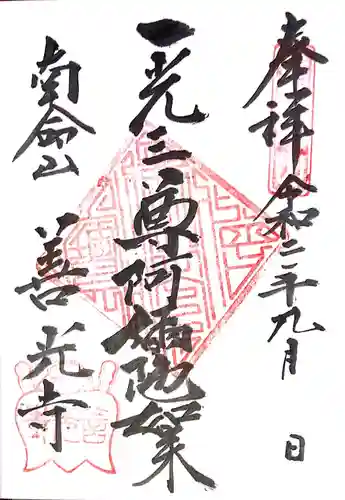 奉拝
令和二年九月 日
一光三尊阿弥陀如来
南命山
善光寺